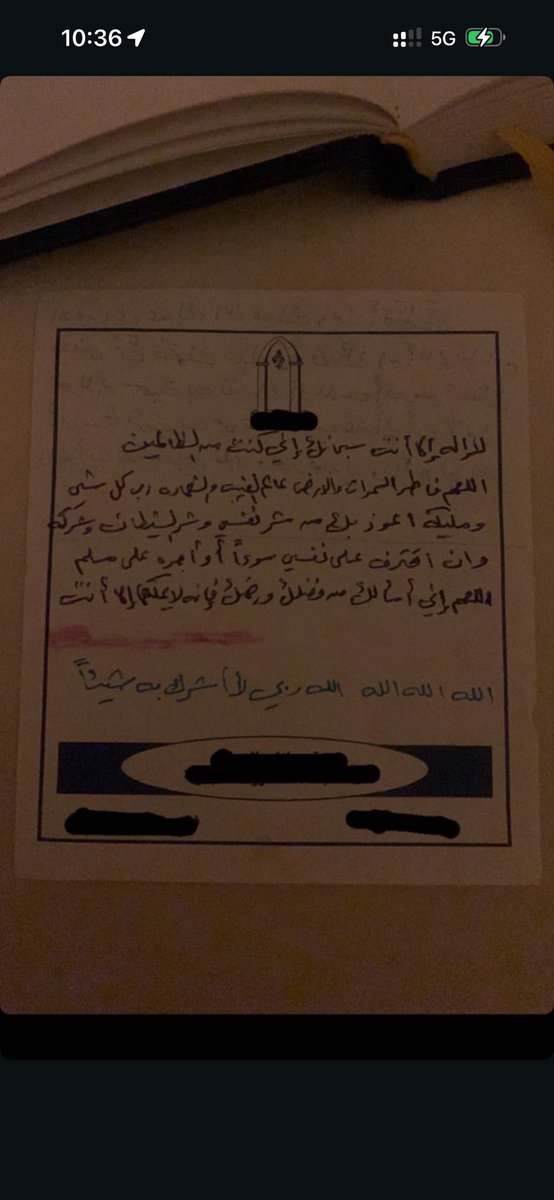 10:36
5G
لا إله إلا أنت سبحانك إني كنت من الظالمين
اللهم فاطر السموات والارض عالم الغيب والشهادة رب كل شي
ومليكه اعوذ بك من شر نفسي وشر الشيطان وشركه
وان اقترف على نفسي سوءاً أو أجره على مسلم
اللهم إني أسألك من فضلك ورحمتك فإنه لا يملكها إلا أنت
الله الله الله الله ربي لا أشرك به شيئاً